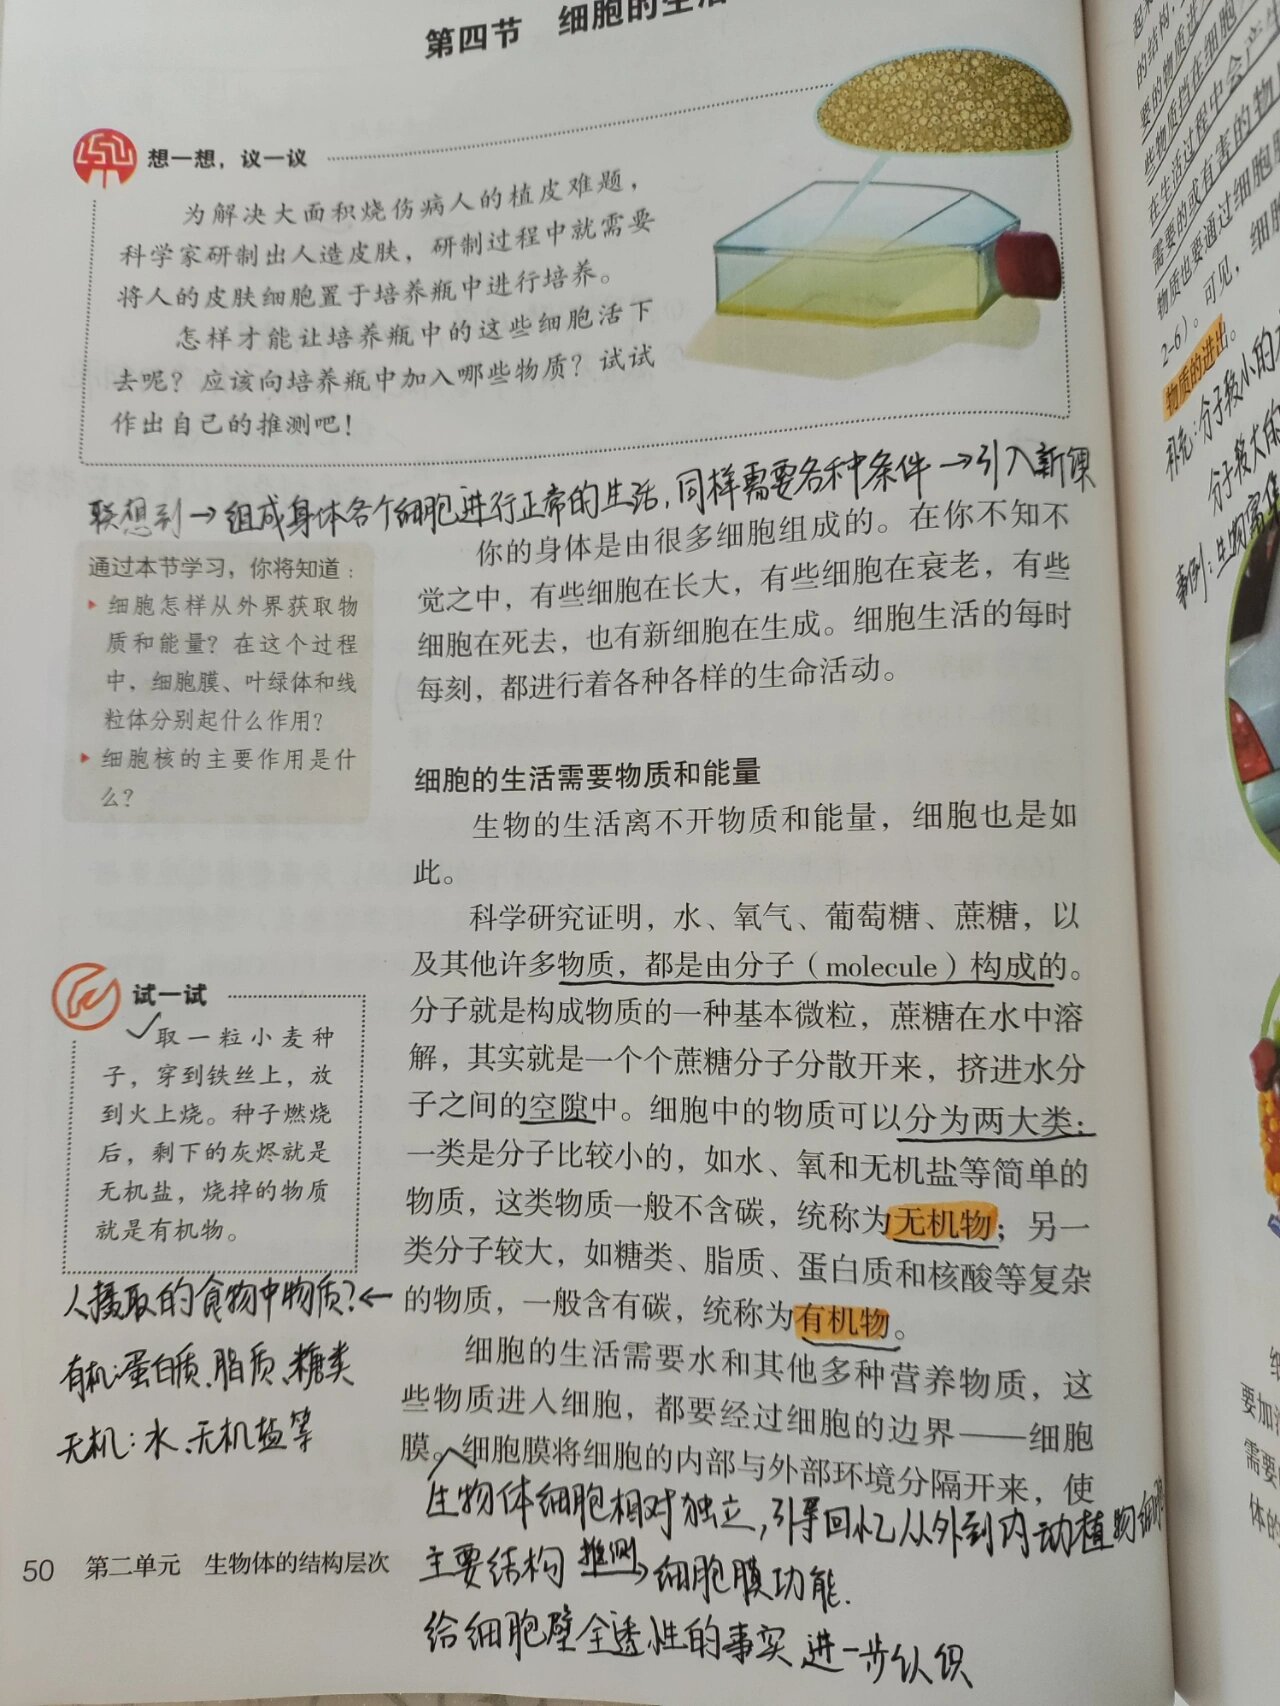 第四节 细胞的生活
想一想，议一议
为解决大面积烧伤病人的植皮难题，
科学家研制出人造皮肤，研制过程中就需要
将人的皮肤细胞置于培养瓶中进行培养。
怎样才能让培养瓶中的这些细胞活下
去呢？应该向培养瓶中加入哪些物质？试试
作出自己的推测吧！
联想到→组成身体各个细胞进行正常的生活，同样需要各种条件→引入新课
通过本节学习，你将知道：
细胞怎样从外界获取物
质和能量？在这个过程
中，细胞膜、叶绿体和线
粒体分别起什么作用？
细胞核的主要作用是什
么？
你的身体是由很多细胞组成的。在你不知不
觉之中，有些细胞在长大，有些细胞在衰老，有些
细胞在死去，也有新细胞在生成。细胞生活的每时
每刻，都进行着各种各样的生命活动。
细胞的生活需要物质和能量
生物的生活离不开物质和能量，细胞也是如
此。
科学研究证明，水、氧气、葡萄糖、蔗糖，以
及其他许多物质，都是由分子（molecule）构成的。
分子就是构成物质的一种基本微粒，蔗糖在水中溶
解，其实就是一个个蔗糖分子分散开来，挤进水分
子之间的空隙中。细胞中的物质可以分为两大类：
一类是分子比较小的，如水、氧和无机盐等简单的
物质，这类物质一般不含碳，统称为无机物；另一
类分子较大，如糖类、脂质、蛋白质和核酸等复杂
的物质，一般含有碳，统称为有机物。
细胞的生活需要水和其他多种营养物质，这
些物质进入细胞，都要经过细胞的边界——细胞
膜。细胞膜将细胞的内部与外部环境分隔开来，使
试一试
✓取一粒小麦种
子，穿到铁丝上，放
到火上烧。种子燃烧
后，剩下的灰烬就是
无机盐，烧掉的物质
就是有机物。
人摄取的食物中物质？←
有机：蛋白质、脂质、糖类
无机：水、无机盐等
生物体细胞相对独立，引导回忆从外到内动植物细胞
主要结构 推测→细胞膜功能.
给细胞壁全透性的事实 进一步认识
50 第二单元 生物体的结构层次
的结构，
要的物质进
些物质挡在细胞
在生活过程中会产生
需要的或有害的物
物质也要通过细胞
2-6）。可见，细胞
物质的进出。
补充：分子较小的
分子较大的
事例：生物富集
细
要加
需要
体的